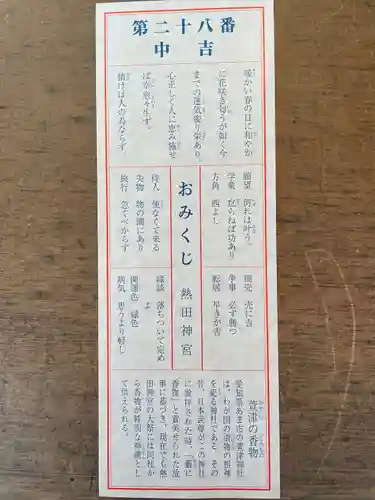 第二十八番
中吉
暖かい春の日に和やか
に花咲き匂うが如く今
までの運気変り栄あり。
心正しく人に恵み施せ
ば幸愈々生ず。
情けは人の為ならず
願望 何れは叶う。
学業 怠らねば功あり
方角 西よし
商売 売に吉
争事 必ず勝つ
転居 早きが吉
おみくじ 熱田神宮
待人 便なくて来る
失物 物の間にあり
旅行 急ぐべからず
縁談 落ちついて定め
よ
開運色 緑色
病気 思うより軽し
萱津の香物
愛知県あま市の萱津神社
は、わが国の漬物の祖神
を祀る神社である。その
昔、日本武尊がこの神社
に参拝された時、「藪に
香物」と賞美せられた故
事に基づき、現在でも熱
田神宮の大祭には同社か
ら香物が特別な神饌とし
て供えられる。